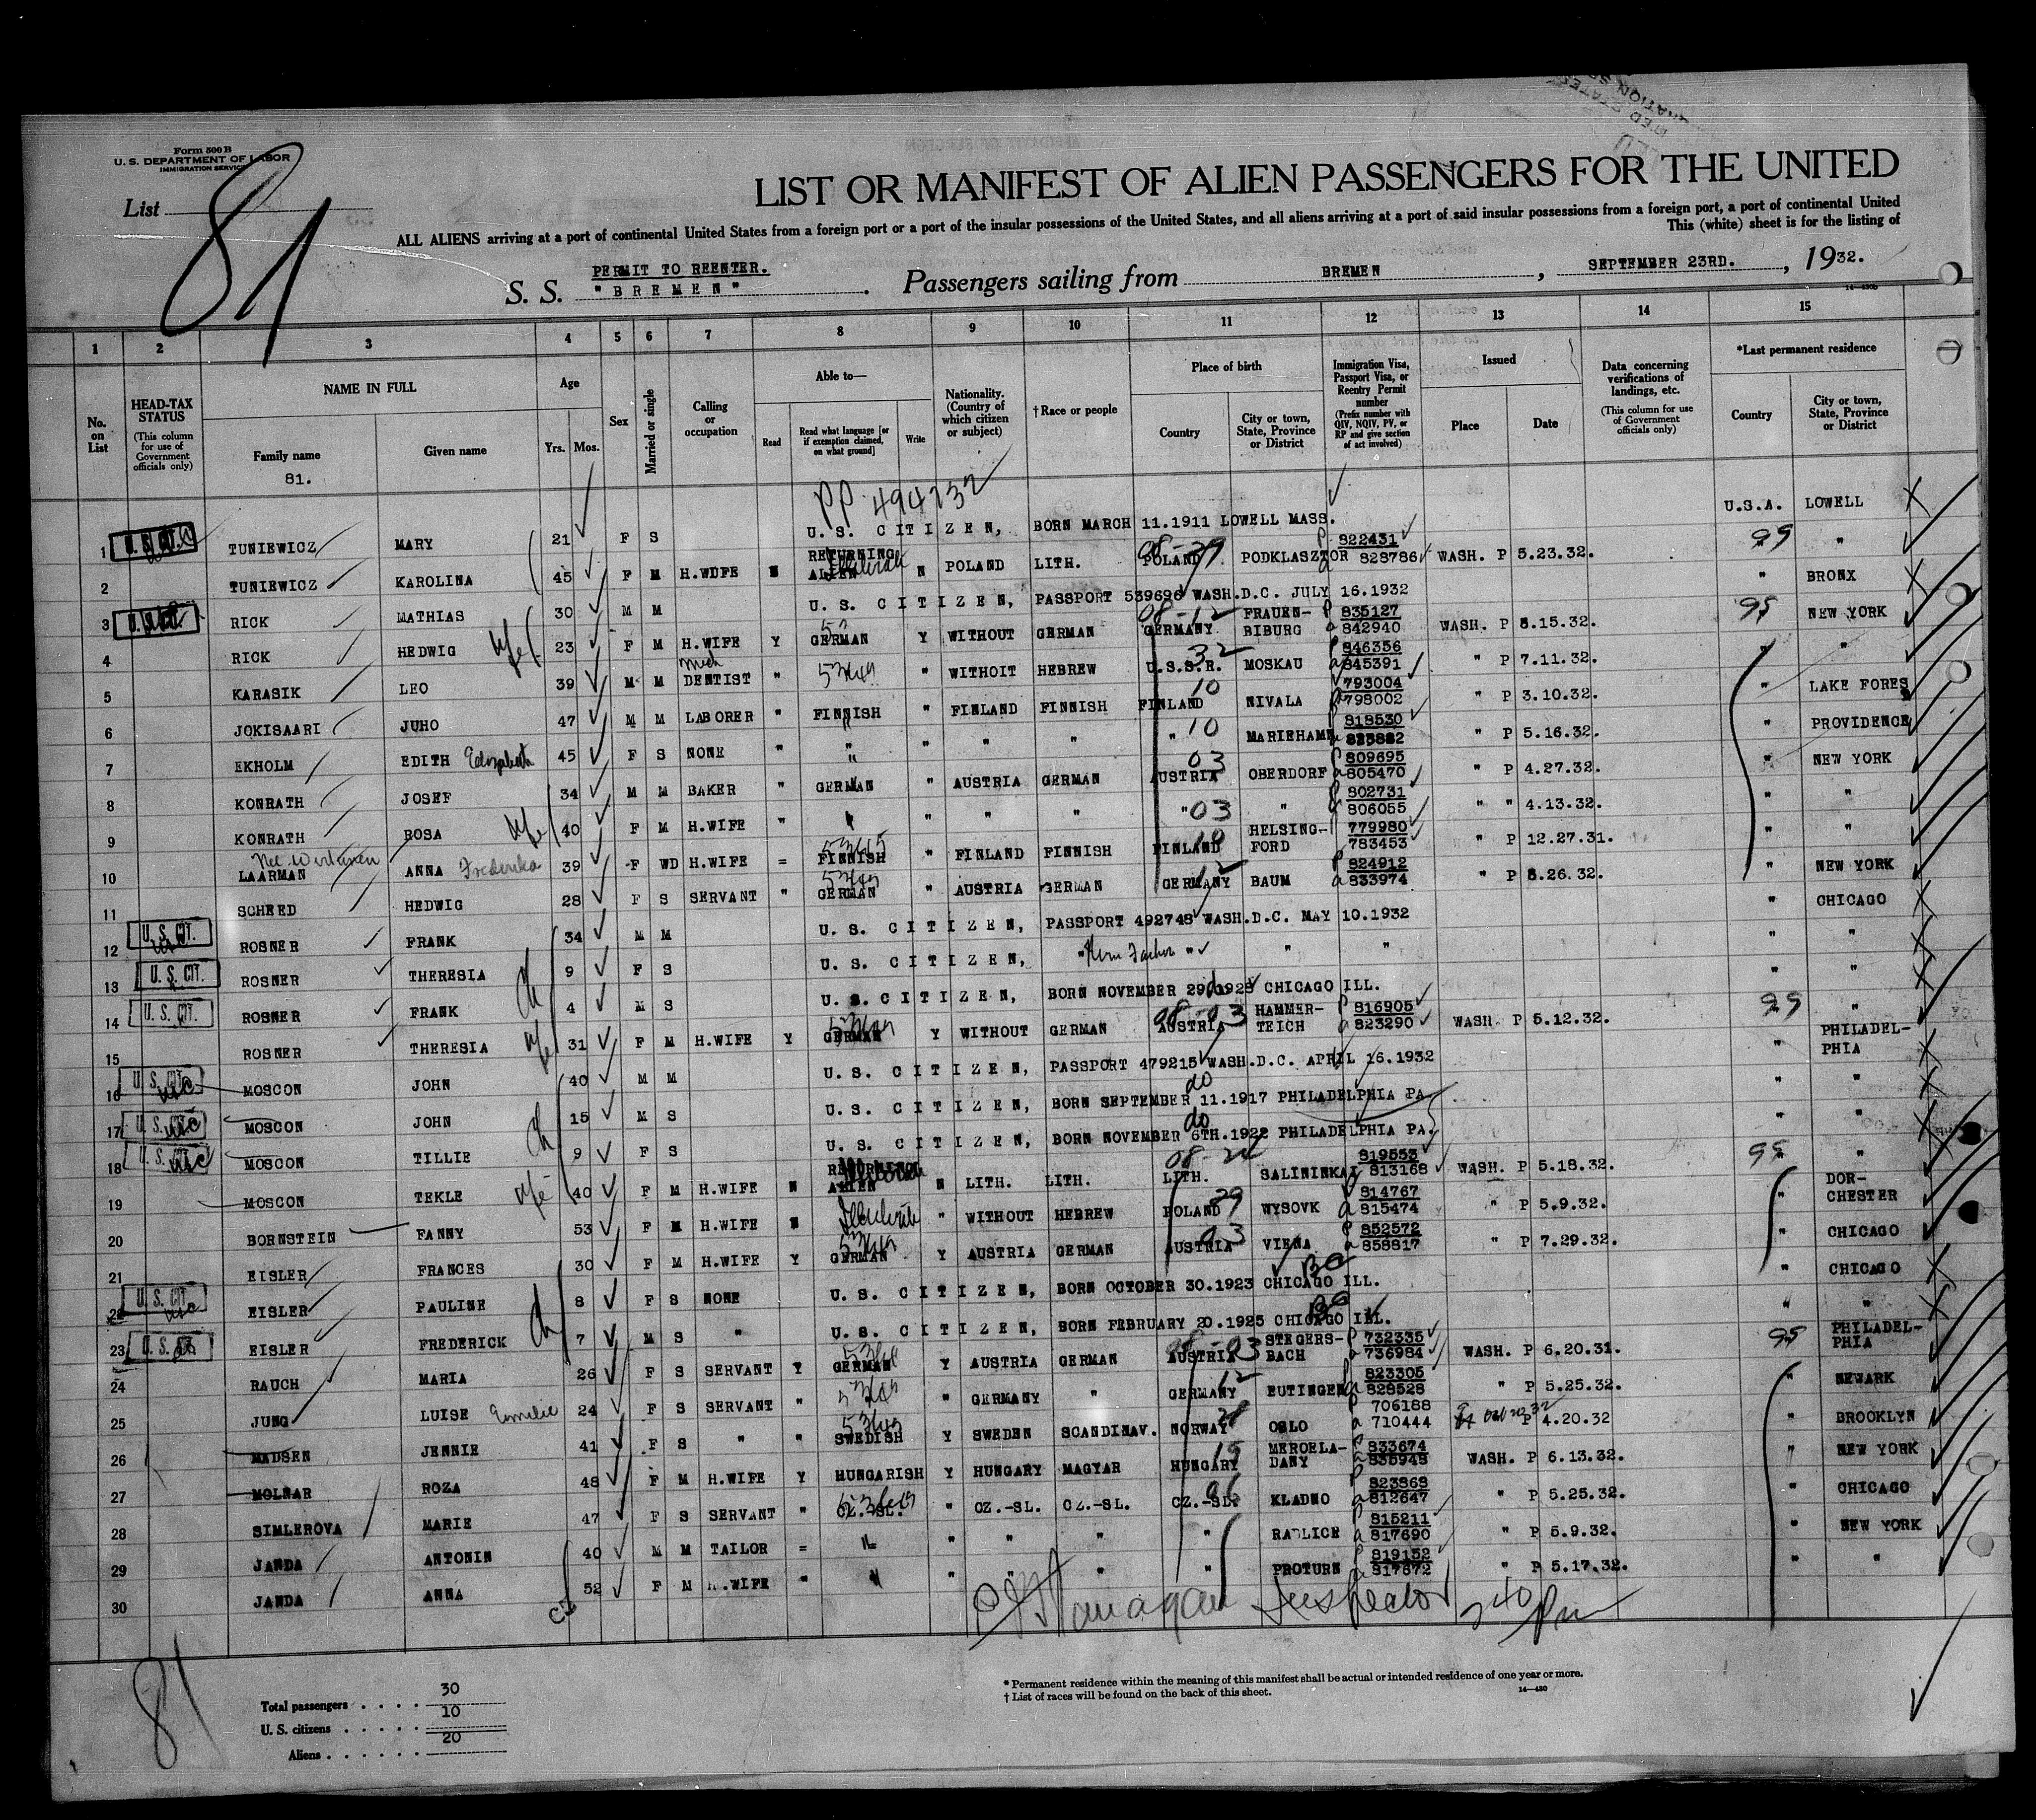 Form 500 B
U. S. DEPARTMENT OF LABOR
IMMIGRATION SERVICE
List 81
LIST OR MANIFEST OF ALIEN PASSENGERS FOR THE UNITED
ALL ALIENS arriving at a port of continental United States from a foreign port or a port of the insular possessions of the United States, and all aliens arriving at a port of said insular possessions from a foreign port, a port of continental United
This (white) sheet is for the listing of
PERMIT TO REENTER.
S. S. "BREMEN" . Passengers sailing from BREMEN , SEPTEMBER 23RD. , 1932.
1 2 3 4 5 6 7 8 9 10 11 12 13 14 15
No. on List
HEAD-TAX STATUS (This column for use of Government officials only)
NAME IN FULL
Family name
Given name
81.
Age
Yrs. Mos.
Sex
Married or single
Calling or occupation
Able to—
Read
Read what language [or if exemption claimed, on what ground]
Write
Nationality. (Country of which citizen or subject)
†Race or people
Place of birth
Country
City or town, State, Province or District
Immigration Visa, Passport Visa, or Reentry Permit number (Prefix number with QIV, NQIV, PV, or RP and give section of act involved)
Issued
Place
Date
Data concerning verifications of landings, etc. (This column for use of Government officials only)
*Last permanent residence
Country
City or town, State, Province or District
PP 494732
1 TUNIEWICZ MARY 21 F S U. S. CITIZEN, BORN MARCH 11.1911 LOWELL MASS. U.S.A. LOWELL
2 TUNIEWICZ KAROLINA 45 F M H.WIFE N RETURNING ALIEN N POLAND LITH. POLAND PODKLASZTOR 822431 828786 WASH. P 5.23.32. " "
3 RICK MATHIAS 30 M M U. S. CITIZEN, PASSPORT 539696 WASH.D.C. JULY 16.1932 " BRONX
4 RICK HEDWIG wife 23 F M H.WIFE Y GERMAN Y WITHOUT GERMAN GERMANY FRAUEN-BIBURG 835127 842940 WASH. P 6.15.32. NEW YORK
5 KARASIK LEO 39 M M DENTIST " " WITHOIT HEBREW U.S.S.R. MOSKAU 846356 845391 " P 7.11.32. " "
6 JOKISAARI JUHO 47 M M LABORER " FINNISH " FINLAND FINNISH FINLAND NIVALA 793004 798002 " P 3.10.32. " LAKE FORES
7 EKHOLM EDITH Elizabeth 45 F S NONE " " " " " " MARIEHAMN 818530 " P 5.16.32. " PROVIDENCE
8 KONRATH JOSEF 34 M M BAKER " GERMAN " AUSTRIA GERMAN AUSTRIA OBERDORF 809695 805470 " P 4.27.32. " NEW YORK
9 KONRATH ROSA wife 40 F M H.WIFE " " " " " " 802731 806055 " " 4.13.32. " "
10 LAARMAN ANNA Frederika 39 F WD H.WIFE = FINNISH " FINLAND FINNISH FINLAND HELSING-FORD 779980 783453 " P 12.27.31. " "
11 SCHEED HEDWIG 28 F S SERVANT " GERMAN " AUSTRIA GERMAN GERMANY BAUM 824912 833974 " P 5.26.32. " NEW YORK
12 U. S. CIT. ROSNER FRANK 34 M M U. S. CITIZEN, PASSPORT 492748 WASH.D.C. MAY 10.1932 " CHICAGO
13 U. S. CIT. ROSNER THERESIA 9 F S U. S. CITIZEN, " " " " " "
14 U. S. CIT. ROSNER FRANK 4 M S U. S. CITIZEN, BORN NOVEMBER 29.1928 CHICAGO ILL. " "
15 ROSNER THERESIA wife 31 F M H.WIFE Y GERMAN Y WITHOUT GERMAN AUSTRIA HAMMER-TEICH 816905 823290 WASH. P 5.12.32. "
16 U. S. CIT. MOSCON JOHN 40 M M U. S. CITIZEN, PASSPORT 479215 WASH.D.C. APRIL 16.1932 " PHILADEL-PHIA
17 U. S. CIT. MOSCON JOHN 15 M S U. S. CITIZEN, BORN SEPTEMBER 11.1917 PHILADELPHIA PA. " "
18 U. S. CIT. MOSCON TILLIE 9 F S U. S. CITIZEN, BORN NOVEMBER 6TH.1922 PHILADELPHIA PA. " "
19 MOSCON TEKLE wife 40 F M H.WIFE N RETURNING ALIEN N LITH. LITH. LITH. SALININKAI 819553 813168 WASH. P 5.18.32. "
20 BORNSTEIN FANNY 53 F M H.WIFE N " WITHOUT HEBREW POLAND WYSOVK 814767 815474 " P 5.9.32. " DOR-CHESTER
21 EISLER FRANCES 30 F M H.WIFE Y GERMAN Y AUSTRIA GERMAN AUSTRIA VIENA 852572 858817 " P 7.29.32. " CHICAGO
22 U. S. CIT. EISLER PAULINE 8 F S NONE U. S. CITIZEN, BORN OCTOBER 30.1923 CHICAGO ILL. " CHICAGO
23 EISLER FREDERICK 7 M S " U. S. CITIZEN, BORN FEBRUARY 20.1925 CHICAGO ILL. " "
24 RAUCH MARIA 26 F S SERVANT Y GERMAN Y AUSTRIA GERMAN AUSTRIA STEGERS-BACH 732335 736984 WASH. P 6.20.31. PHILADEL-PHIA
25 JUNG LUISE Emilie 24 F S SERVANT " " GERMANY " GERMANY EUTINGEN 823305 828528 " P 5.25.32. " NEWARK
26 MADSEN JENNIE 41 F S " " SWEDISH Y SWEDEN SCANDINAV. NORWAY OSLO 706188 710444 P 4.20.32 " BROOKLYN
27 MOLNAR ROZA 48 F M H.WIFE Y HUNGARISH Y HUNGARY MAGYAR HUNGARY MEROELA-DANY 833674 835948 WASH. P 6.13.32. " NEW YORK
28 SIMLEROVA MARIE 47 F S SERVANT " CZ.-SL. " CZ.-SL. CZ.-SL. CZ.-SL. KLADNO 823868 812647 " P 5.25.32. " CHICAGO
29 JANDA ANTONIN 40 M M TAILOR = " " " " " RADLICE 815211 817690 " P 5.9.32. " NEW YORK
30 JANDA ANNA 52 F M H.WIFE " " " " " " PROTURN 819152 817872 " P 5.17.32. " "
Inspector
81
Total passengers . . . . 30
U. S. citizens . . . . . 10
Aliens . . . . . . 20
* Permanent residence within the meaning of this manifest shall be actual or intended residence of one year or more.
† List of races will be found on the back of this sheet.
14—430